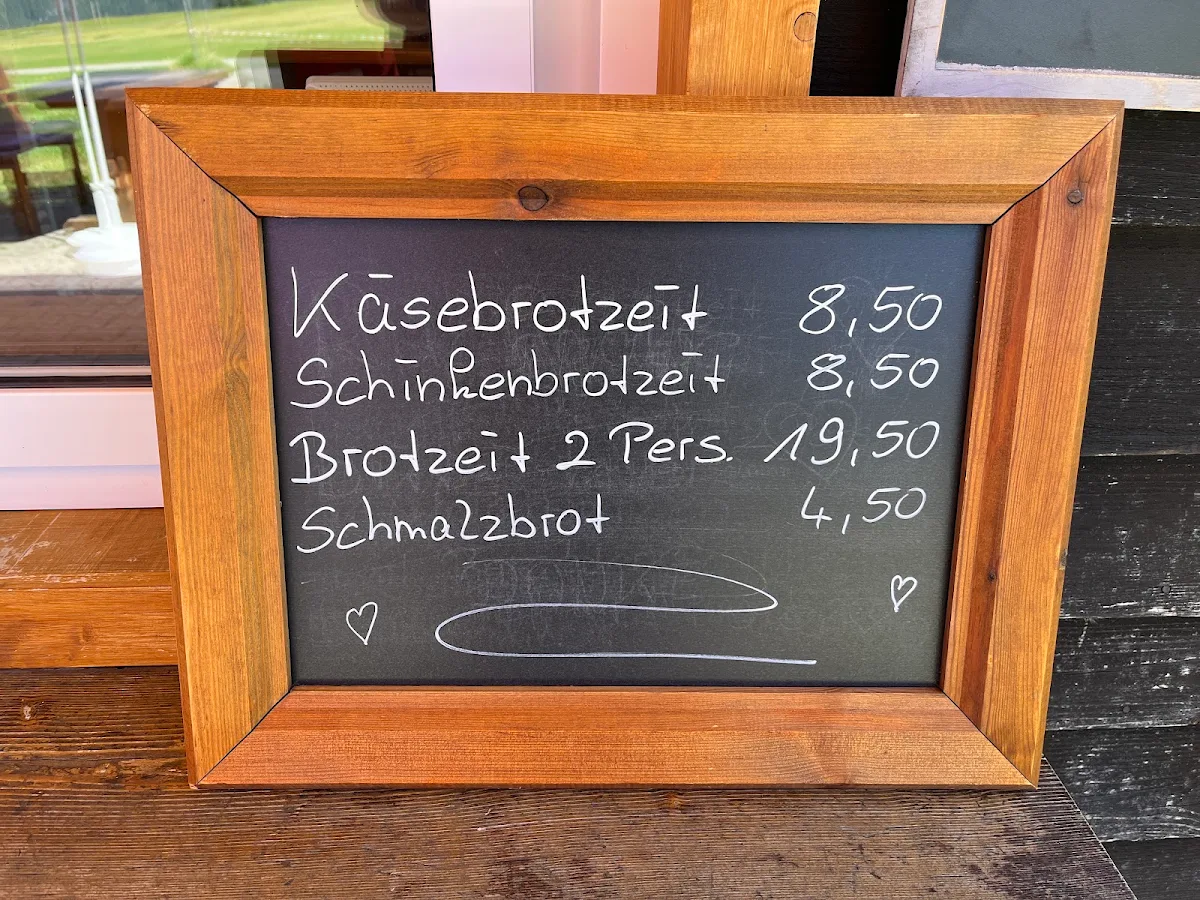 Käsebrotzeit 8,50
Schinkenbrotzeit 8,50
Brotzeit 2 Pers. 19,50
Schmalzbrot 4,50